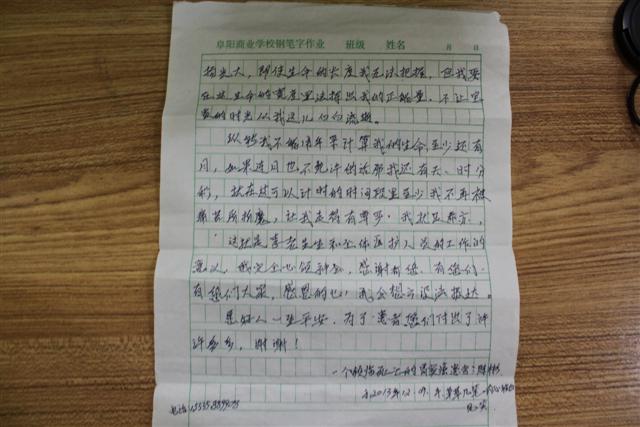 阜阳商业学校钢笔字作业 班级 姓名 月 日
扬光大，即使生命的长度我无法把握，但我要
在生命的宽度里发挥出我的正能量，不让宝
贵的时光从我这儿白白流逝。
纵然我不能用年算计算我的生命，至少还有
月，如果连月也不允许的话那我还有天、时分
秒，就在这可以计时的时间段里至少我不再被
病某所折磨，让我走得有尊严。我就足矣，
这就是李老先生和全体医护人员的工作的
意义，我完全心领神会，感谢有您、有您们
有您们大家，感恩的心，我会想方设法报达。
愿好人一生平安，为了患者您们付出了许
许多多，谢谢！
一个被
2013年12.
电话